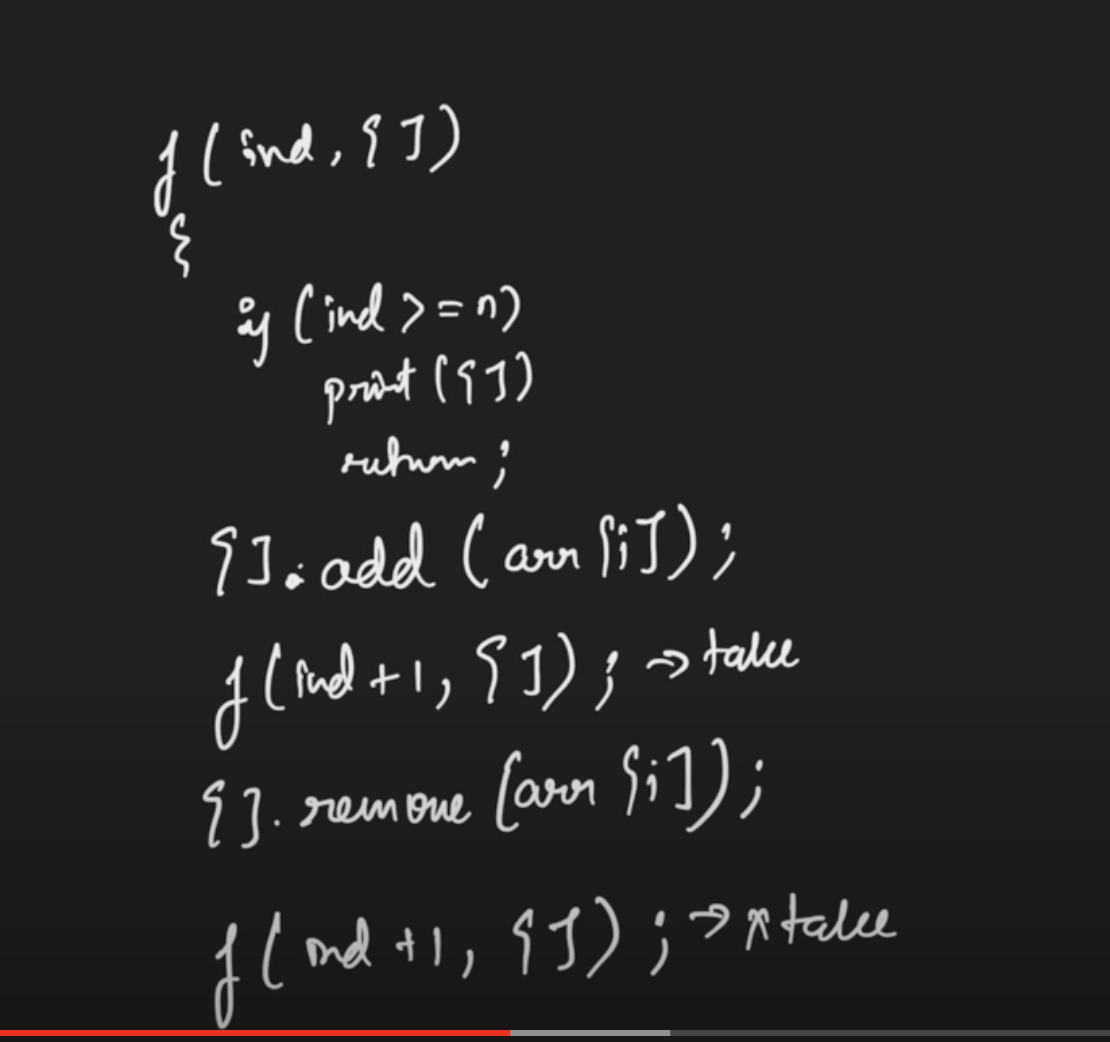 f(ind, [])
{
if (ind >= n)
print([])
return;
[].add(arr[i]);
f(ind+1, []); → take
[].remove(arr[i]);
f(ind+1, []); → x take